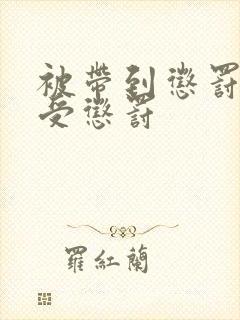 被帶到懲罰
受懲罰
羅紅蘭